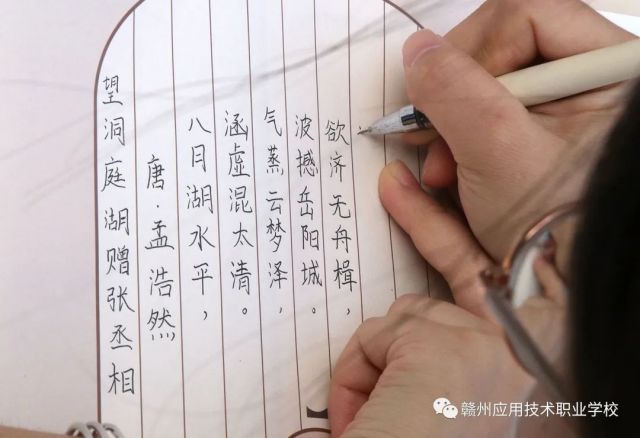 望洞庭湖赠张丞相
唐·孟浩然
八月湖水平，
涵虚混太清。
气蒸云梦泽，
波撼岳阳城。
欲济无舟楫，
赣州应用技术职业学校